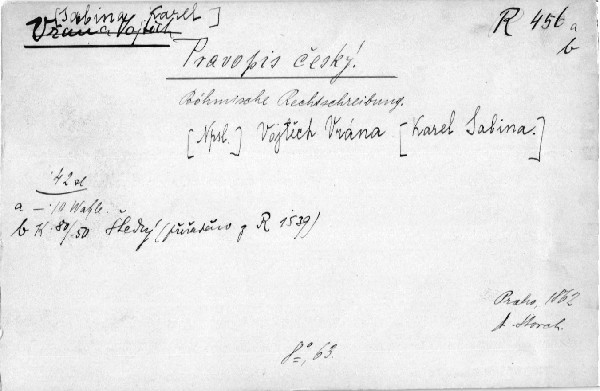 [Sabina Karel]
Vrána Vojtěch
R 456 a
b
Pravopis český.
Böhmische Rechtschreibung.
[Npsl.] Vojtěch Vrána [Karel Sabina.]
42 d
a — 10 Wahle.
b K 80/50 Šledrý (přiřaděno z R 1539)
Praha, 1862
A. Storch.
8°, 63.